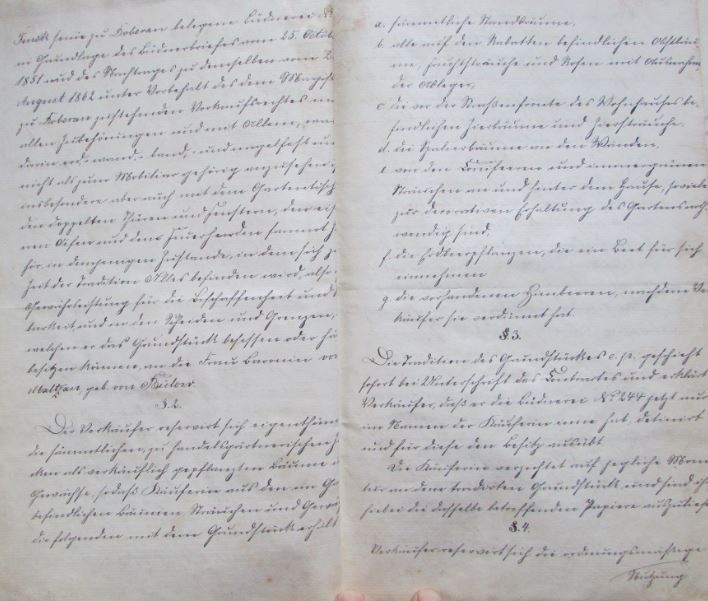 seine zu Doberan belegene Büdnerei
in Grundlage des Büdnerbriefes vom 25. Octob
1851 und des Nachtrages zu demselben vom 2
August 1862 unter Vorbehalt des dem Magist
zu Doberan zustehenden Vorkaufsrechtes mit
allen Zubehörungen und mit Allem, was
darin erd-, wand-, band-, und nagelfest und
nicht als zum Mobiliar gehörig anzusehen i
insbesondere aber auch mit dem Gartentisch
den doppelten Thüren und Fenstern, den eiser
nen Oefen und dem Feuerheerden sammt Zu
hör, in demjenigen Zustande, in dem sich z
Zeit der Tradition Alles befinden wird, also
Gewährleistung für die Beschaffenheit und
barkeit und in den Scheiden und Grenzen,
welchen er das Grundstück besessen oder hä
besitzen können, an die Frau Baronin von
Maltzan, geb. von Bülow.
§. 2.
Der Verkäufer reservirt sich eigenthüm
die sämmtlichen, zu handelsgärtnerischen
ken als verkäuflich gepflanzten Bäume
Gewächse, sodaß Käuferin aus den im Ga
befindlichen Bäumen Sträuchern und Gewä
die folgenden mit dem Grundstück erhält
a. sämmtliche Standbäume,
b. alle auf den Rabatten befindlichen Obstbäu
me, Fruchtsträuche und Rosen mit Ausnahm
der Ableger,
c. die vor der Straßenfronte des Wohnhauses be-
findlichen Zierbäume und Ziersträuche.
d. die Spalierbäume an den Wänden.
e. von den Coniferen und immergrünen
Sträuchen an und hinter dem Hause, soviele
zur decorativen Erhaltung des Gartens noth
wendig sind,
f. die Erdbeerpflanzen, die ein Beet für sich
einnehmen
g. die vorhandenen Himbeeren, nachdem Ve
käufer sie verdünnt hat.
§. 3.
Die Tradition des Grundstückes c. p. geschieht
sofort bei Unterschrift des Contractes und erklärt
Verkäufer, daß er die Büdnerei No. 244 jetzt nur
im Namen der Käuferin inne hat, detinirt
und für diese den Besitz ausübt.
Die Käuferin verzichtet auf jegliche
tur an dem tradirten Grundstück und sind ihr
hiebei die dasselbe betreffenden Papiere auszuliefe
§. 4.
Verkäufer reservirt sich die ordnungsmäßige
Nutzung